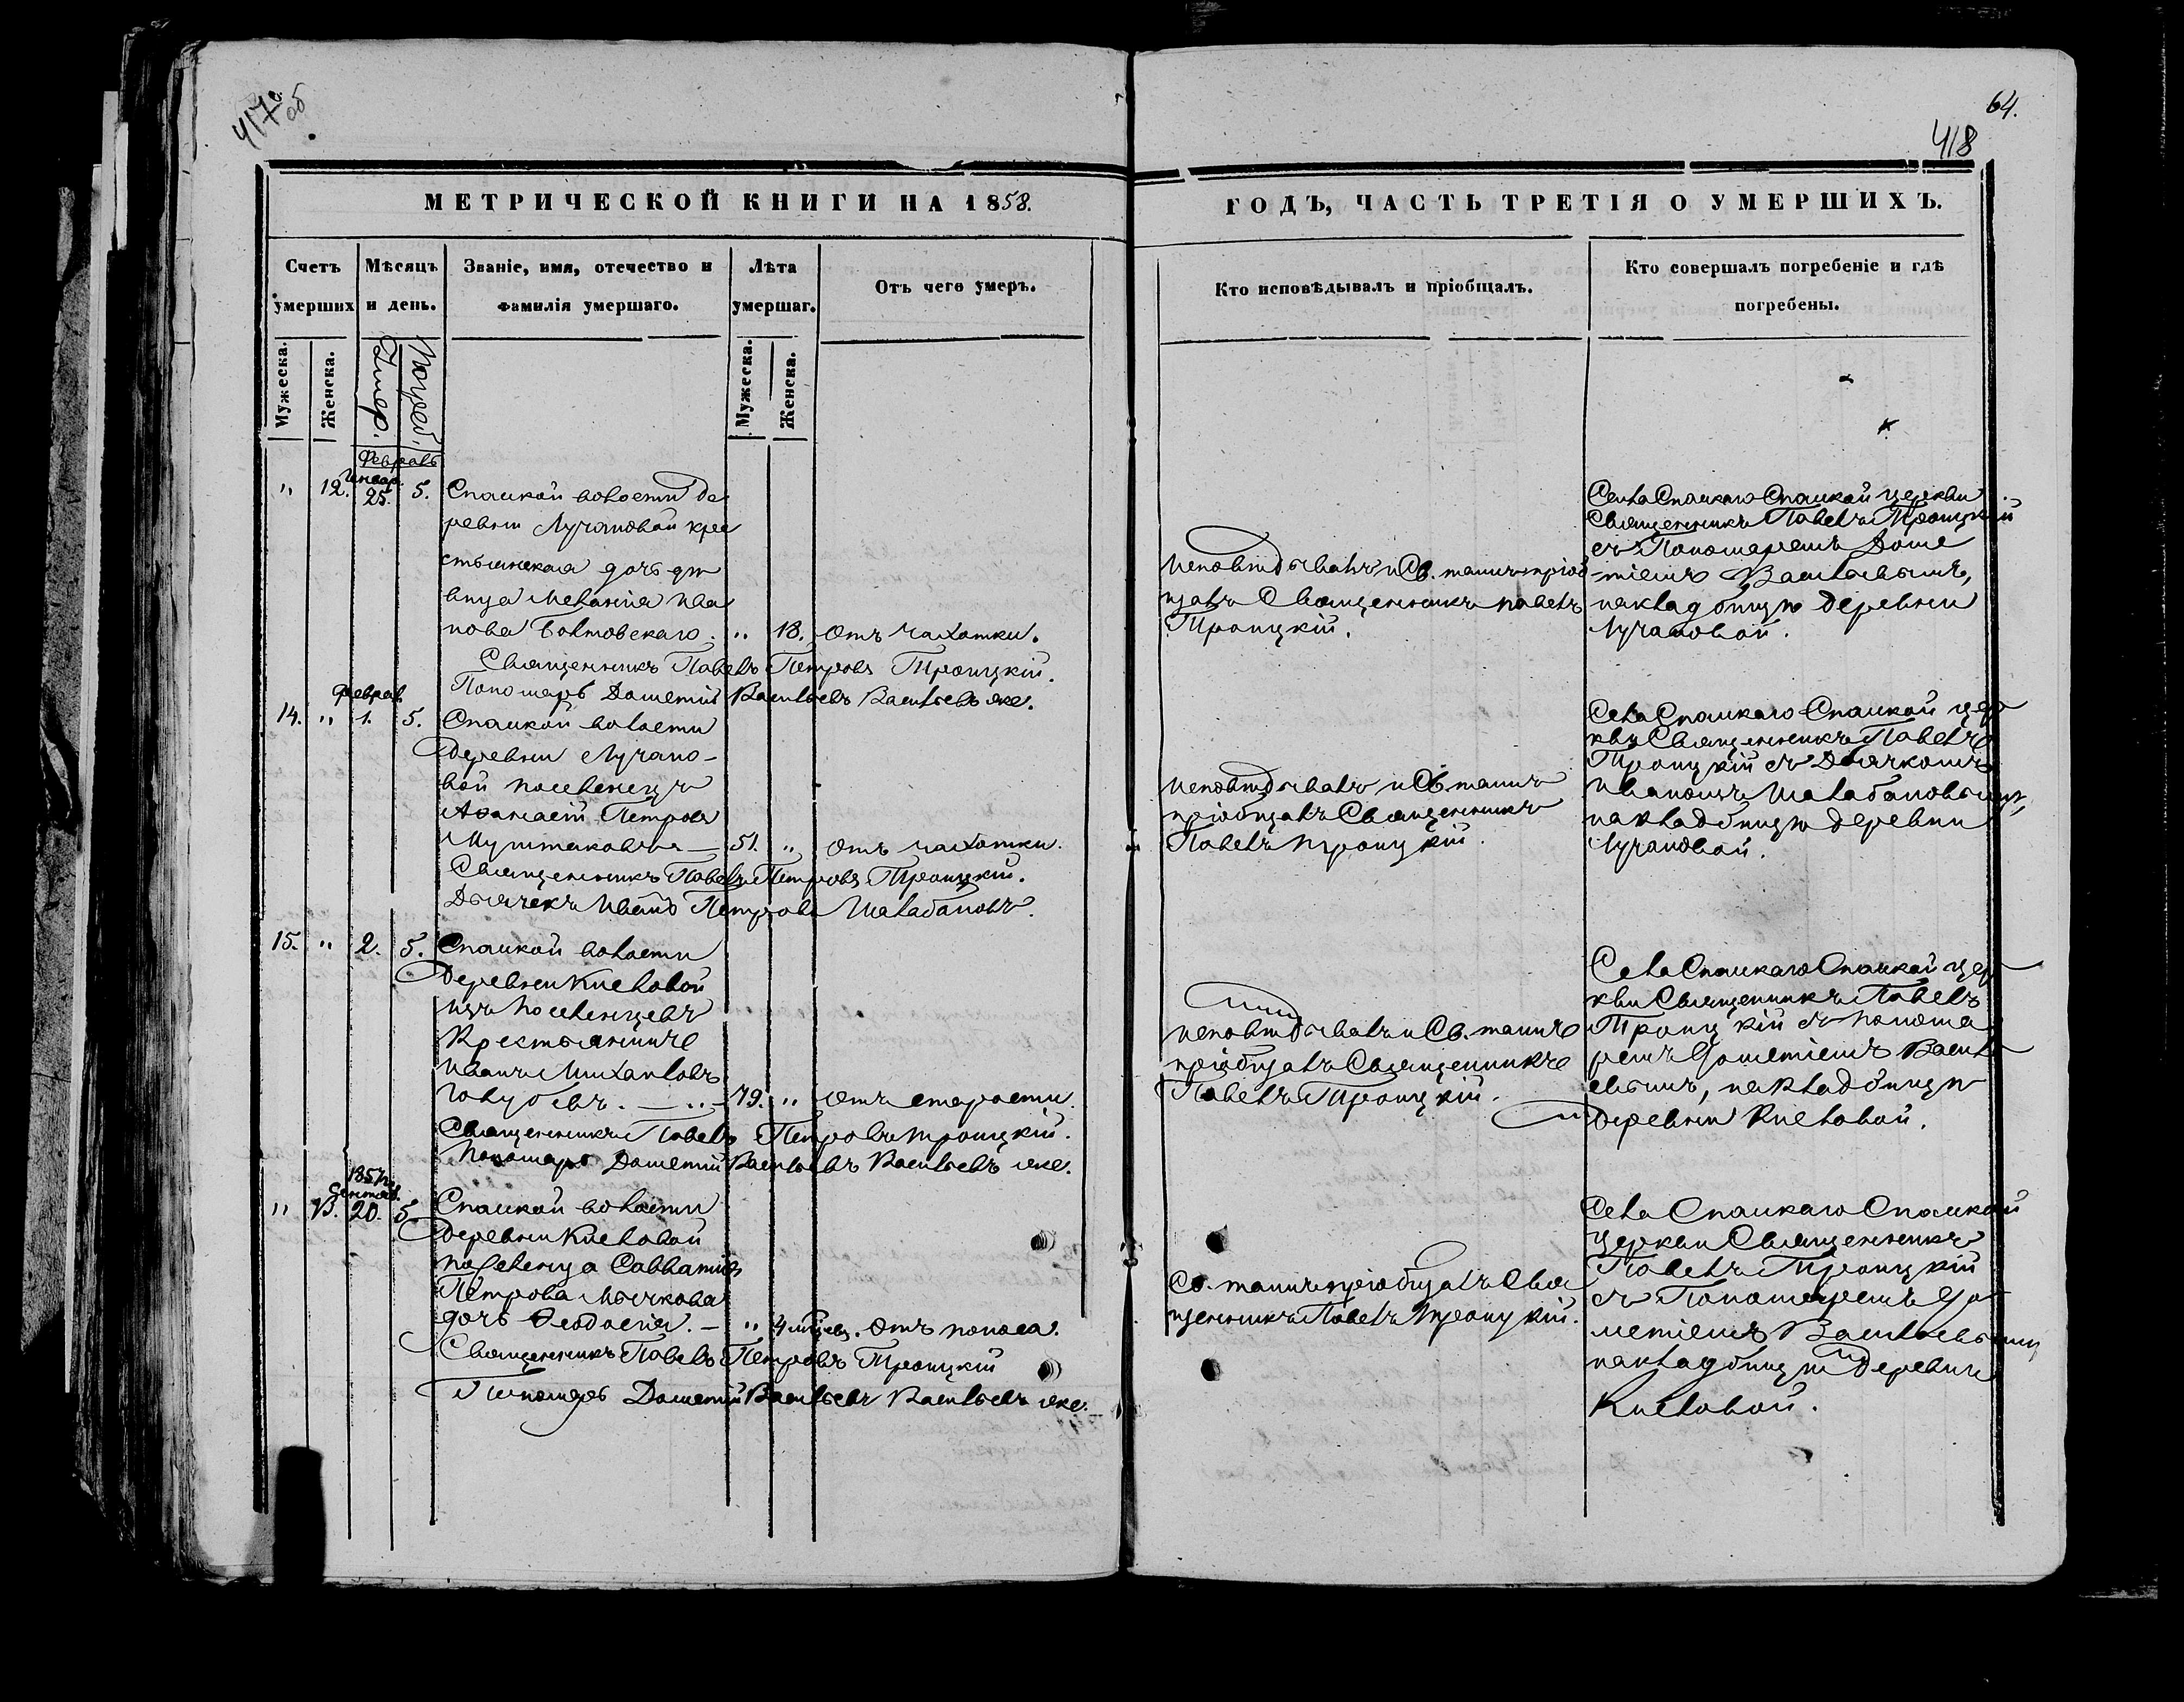 417 об
64.
418
МЕТРИЧЕСКОЙ КНИГИ НА 1858.
ГОДЪ, ЧАСТЬ ТРЕТІЯ О УМЕРШИХЪ.
Счетъ умерших
Мѣсяцъ и день.
Званіе, имя, отечество и фамилія умершаго.
Лѣта умершаг.
Отъ чего умеръ.
Кто исповѣдывалъ и пріобщалъ.
Кто совершалъ погребеніе и гдѣ погребены.
Мужеска.
Женска.
Умер.
Погреб.
Мужеска.
Женска.
Февраль
" 12. Январ. 25. 5.
Спаской волости де
ревни Лучановой кре
стьянская дочь дѣ
вица Меланія Ива
нова Болтовскаго. " 18. отъ чахотки.
Священникъ Павелъ Петровъ Троицкій.
Пономарь Дометій Васильевъ Васильевъ же.
исповѣдывалъ и Св. таинъ пріоб
щалъ Священникъ Павелъ
Троицкій.
Села Спаскаго Спаской церкви
Священникъ Павелъ Троицкій
съ Пономаремъ Доме
тіемъ Васильевымъ,
на кладбищѣ деревни
Лучановой.
14. " Феврал. 1. 5.
Спаской волости
деревни Лучано-
вой поселенецъ
Аѳанасій Петровъ
51. " отъ чахотки.
Священникъ Павелъ Петровъ Троицкій.
Дьячекъ Иванъ Петровъ Шалабановъ.
исповѣдывалъ и Св. таинъ
пріобщалъ Священникъ
Павелъ Троицкій.
Села Спаскаго Спаской цер
кви Священникъ Павелъ
Троицкій съ Дьячкомъ
Иваномъ Шалабановымъ,
на кладбищѣ деревни
Лучановой.
15. " 2. 5.
Спаской волости
деревни Кисловой
изъ поселенцевъ
Крестьянинъ
Иванъ Михайловъ
Голубевъ. — " — 79. " отъ старости.
Священникъ Павелъ Петровъ Троицкій.
Пономарь Дометій Васильевъ Васильевъ же.
исповѣдывалъ и Св. таинъ
пріобщалъ Священникъ
Павелъ Троицкій.
Села Спаскаго Спаской цер
кви Священникъ Павелъ
Троицкій съ понома
ремъ Дометіемъ Василь
евымъ, на кладбищѣ
деревни Кисловой.
" 13. 1857 г. Сентяб. 20. 5.
Спаской волости
деревни Кисловой
поселенца Савватія
Петрова Мычкова
дочь Ѳеодосія. — " 4 мѣсяц. отъ поноса.
Священникъ Павелъ Петровъ Троицкій
Пономарь Дометій Васильевъ Васильевъ же.
Св. таинъ пріобщалъ Свя
щенникъ Павелъ Троицкій.
Села Спаскаго Спаской
церкви Священникъ
Павелъ Троицкій
съ Пономаремъ До
метіемъ Васильевымъ
на кладбищѣ деревни
Кисловой.